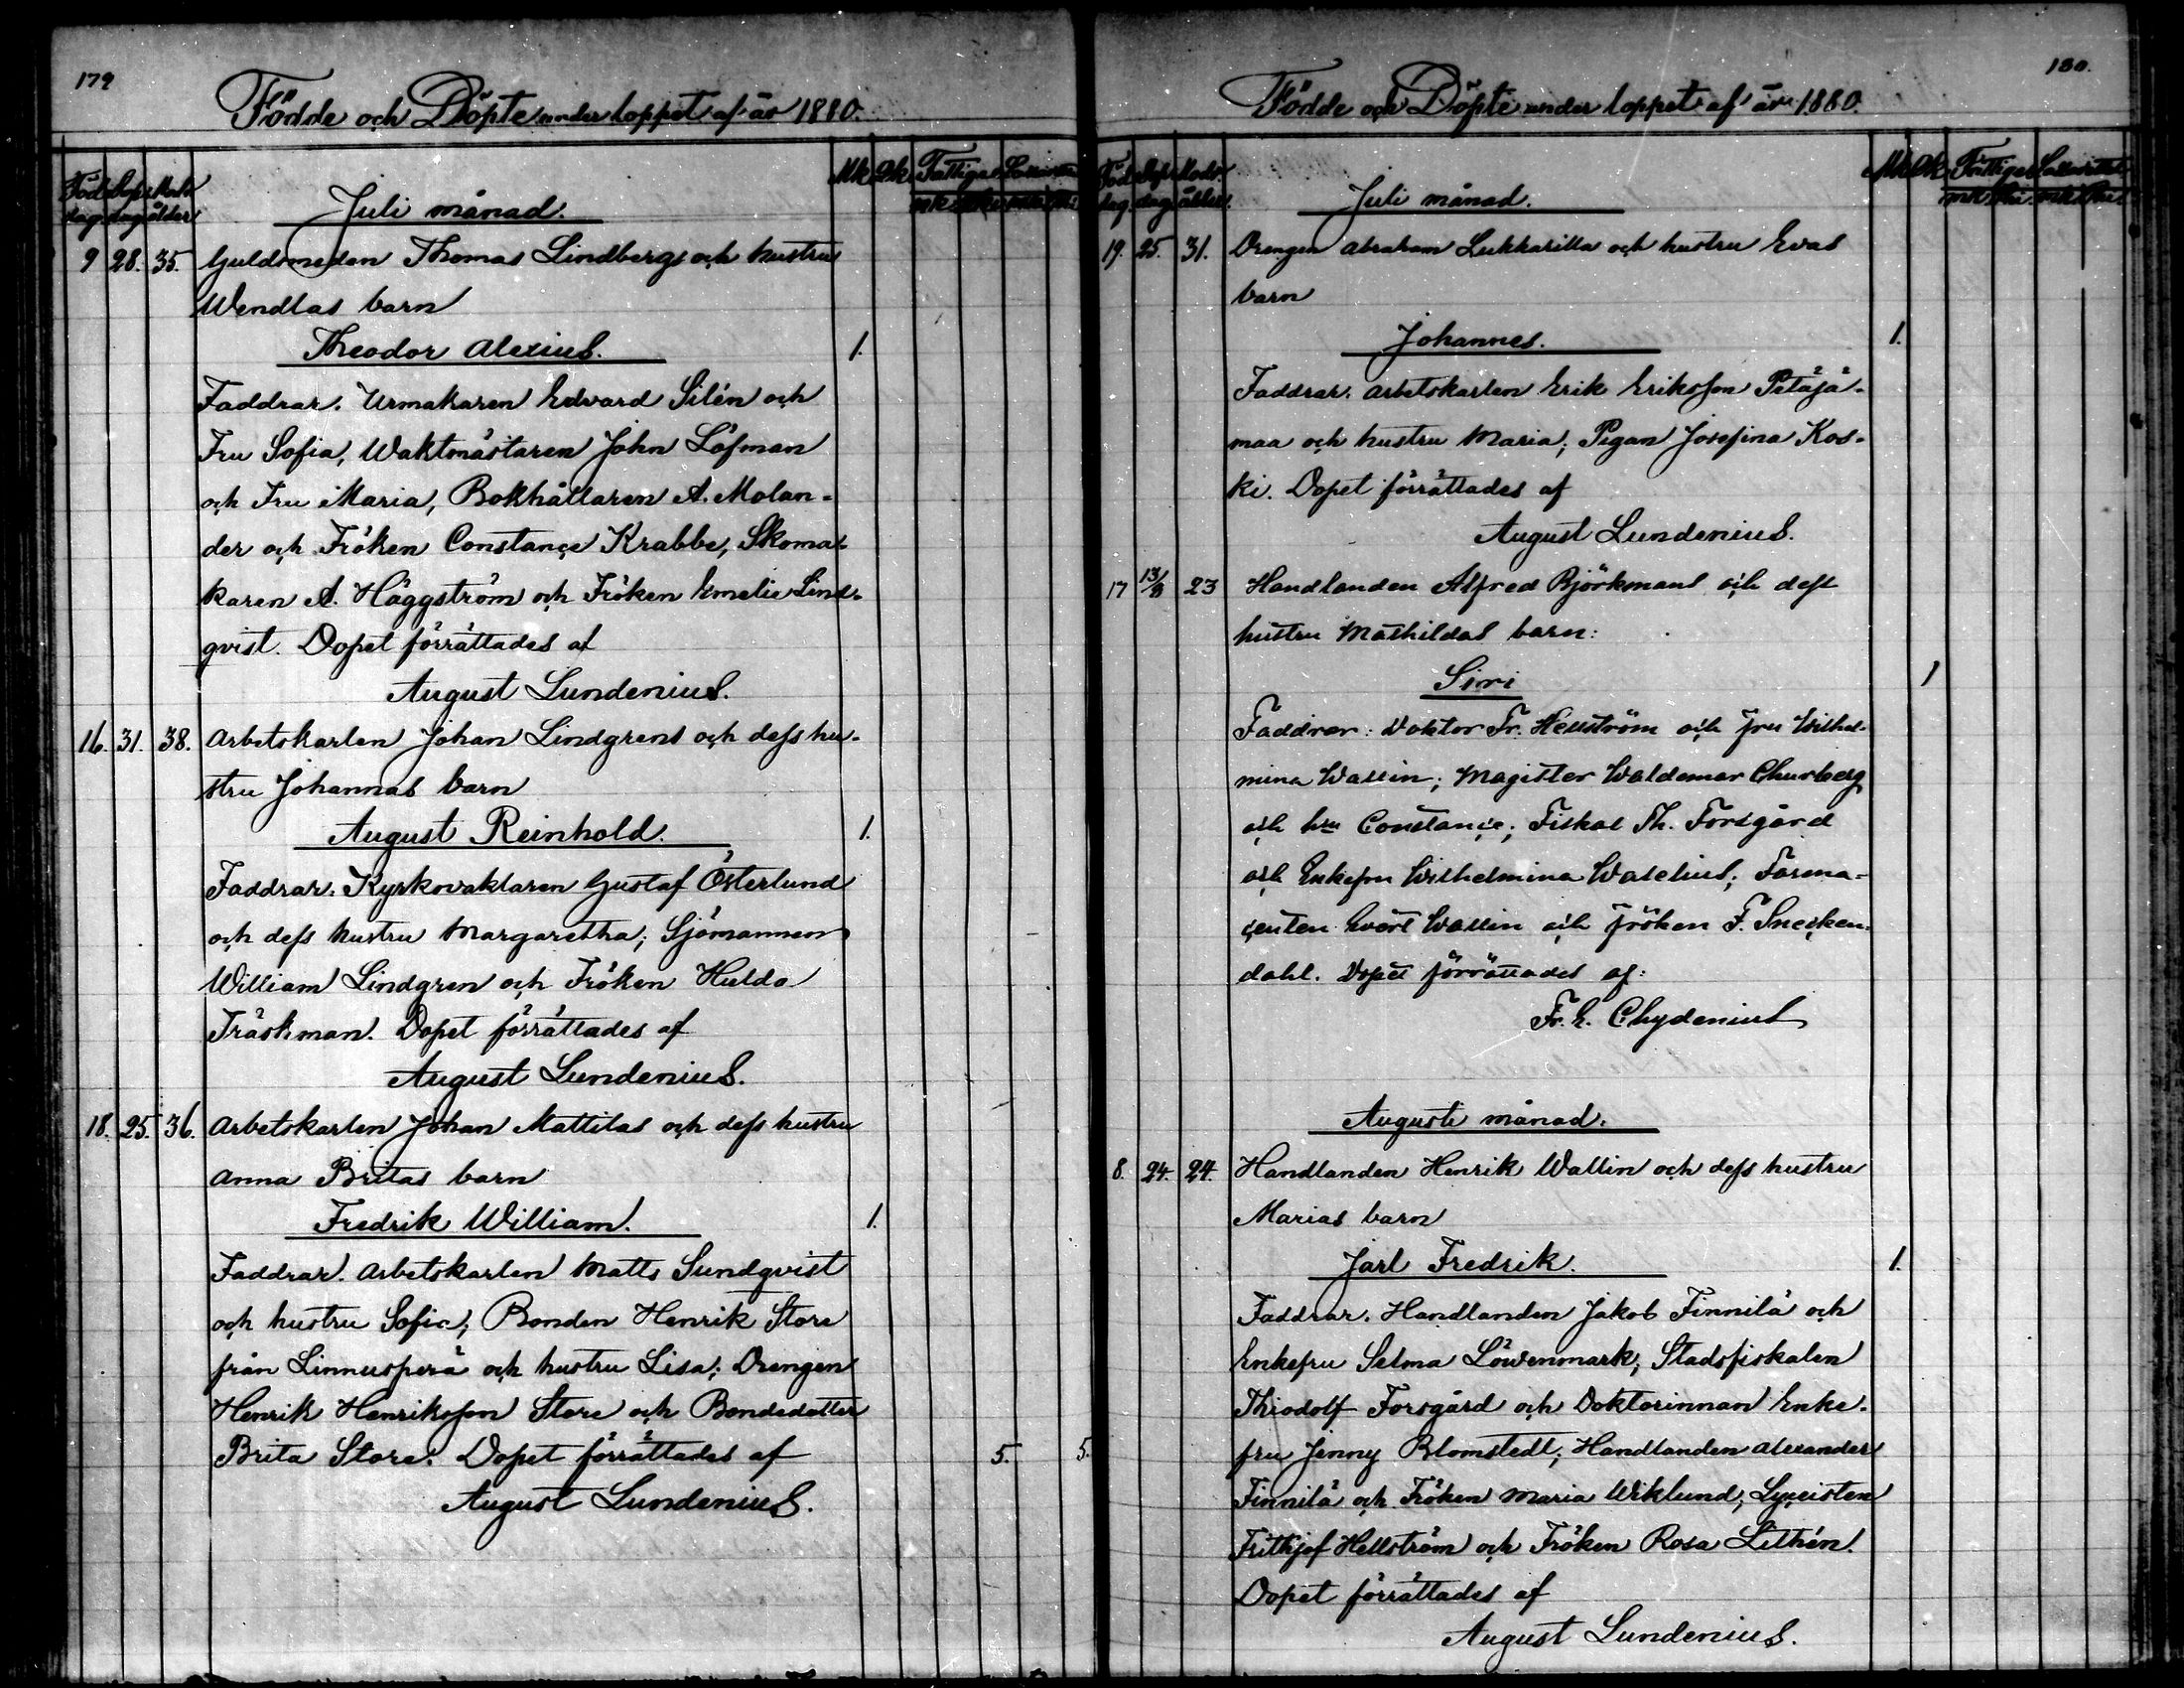 179
Födde och Döpte under loppet af år 1880.
Föd. dag. Döpe dag Mod. ålder Mk Qk Fattiga
mk
Juli månad.
9 28. 35. Guldsmeden Thomas Lindbergs och hustru
Wendlas barn
Theodor Alexius. 1.
Faddrar. Urmakaren Edvard Silén och
Fru Sofia, Waktmästaren John Löfman
och Fru Maria, Bokhållaren A. Molan-
der och Fröken Constançe Krabbe, Skoma-
karen A. Häggström och Fröken Emelie Lind-
qvist. Dopet förrättades af
August Lundenius.
16. 31. 38. Arbetskarlen Johan Lindgrens och dess hu-
stru Johannas barn
August Reinhold. 1.
Faddrar. Kyrkovaktaren Gustaf Österlund
och dess hustru Margaretha; Sjömannen
William Lindgren och Fröken Hulda
Träskman. Dopet förrättades af
August Lundenius.
18. 25. 36. Arbetskarlen Johan Mattilas och dess hustru
Anna Britas barn
Fredrik William. 1.
Faddrar. Arbetskarlen Matts Sundqvist
och hustru Sofia; Bonden Henrik Store
från Linnusperä och hustru Lisa; Drengen
Henrik Henriksson Store och Bondedotter
Brita Store. Dopet förrättades af 5. 5.
August Lundenius.
180.
Födde och Döpte under loppet af år 1880.
Föd. dag. Döpe dag Mod. ålder. Mk Qk Fattiga
mk
Juli månad.
19. 25. 31. Drengen Abraham Lukkarilla och hustru Evas
barn
Johannes. 1.
Faddrar. Arbetskarlen Erik Eriksson Petäjä-
maa och hustru Maria; Pigan Josefina Kos-
ki. Dopet förrättades af
August Lundenius.
17 13/8 23 Handlanden Alfred Björkmans och dess
hustru Mathildas barn:
Siri 1
Faddrar: Doktor Fr. Hellström och fru Wilhel-
mina Wallin; Magister Waldemar Churberg
och hru Constançe; Fiskal Th. Forsgård
och Enkefru Wilhelmina Waselius; Farma-
çeuten Evert Wallin och fröken F. Sneçken-
dahl. Dopet förrättades af:
Fr. E. Chydenius
Augusti månad.
8. 24. 24. Handlanden Henrik Wallin och dess hustru
Marias barn
Jarl Fredrik. 1.
Faddrar. Handlanden Jakob Finnilä och
Enkefru Selma Löwenmark; Stadsfiskalen
Thiodolf Forsgård och Doktorinnan Enke-
fru Jenny Blomstedt; Handlanden Alexander
Finnilä och Fröken Maria Wiklund; Lyçeisten
Frithjof Hellström och Fröken Rosa Lithén.
Dopet förrättades af
August Lundenius.